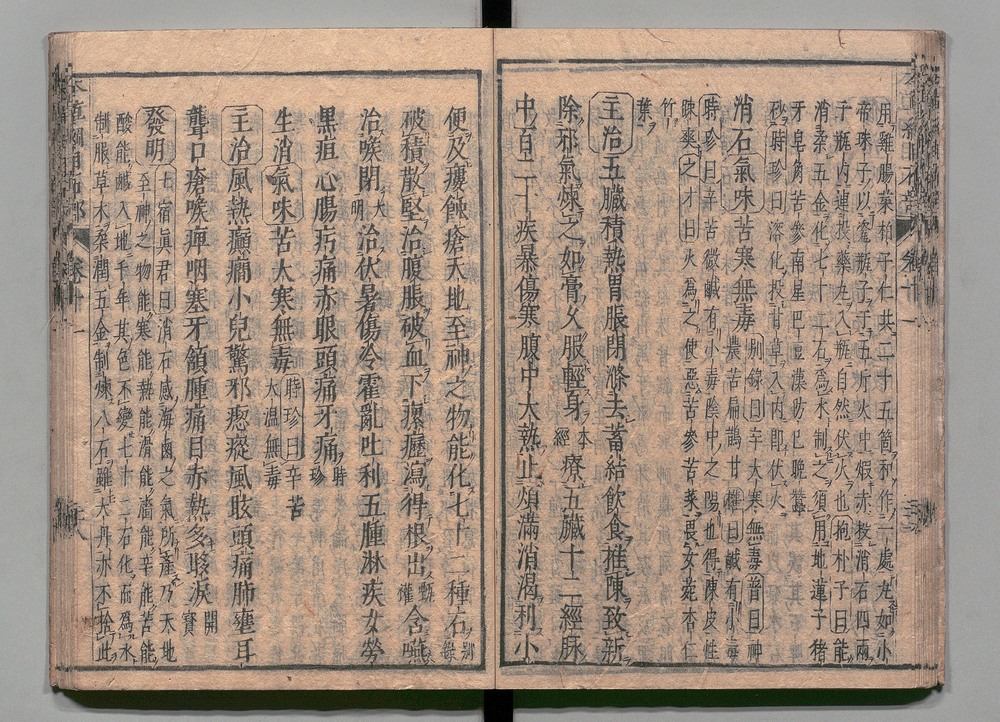 用雞腸菜柏子仁共二十五箇和作一處丸如小
帝珠子以瓷瓶子於五斤火中煅赤投消石四兩
子瓶内連投藥丸入瓶自然伏火也抱朴子曰能
消柔五金化七十二石爲水制之須用地蓮子猪
牙皂角苦參南星巴豆漢防已晚蠶
砂時珍曰溶化投甘草入内即伏火
消石氣味苦寒無毒 别錄曰辛大寒無毒普曰神
農苦扁鵲甘權曰鹹有小毒
時珍曰辛苦微鹹有小毒陰中之陽也得陳皮性
踈爽之才曰火爲之使惡苦參苦菜畏女菀杏仁
竹
葉
主治五臟積熱胃脹閉滌去蓄結飲食推陳致新
除邪氣煉之如膏久服輕身 本經 療五臟十二經脉
中百二十疾暴傷寒腹中大熱止煩滿消渴利小
便及瘻蝕瘡天地至神之物能化七十二種石 别錄
破積散堅治腹脹破血下瘰癧瀉得根出 甄權 含嚥
治喉閉 大明 治伏暑傷冷霍亂吐利五腫淋疾女勞
黑疸心腸疠痛赤眼頭痛牙痛 時珍
生消氣味苦大寒無毒 時珍曰辛苦
大温無毒
主治風熱癲癇小兒驚邪瘛瘲風眩頭痛肺壅耳
聾口瘡喉痺咽塞牙頷腫痛目赤熱多眵淚 開寶
發明 土宿眞君曰消石感海鹵之氣所產乃天地
至神之物能寒能熱能滑能濇能辛能苦能
酸能鹹入地千年其色不變七十二石化而爲水
制服草木柔潤五金制煉八石雖大丹亦不捨此